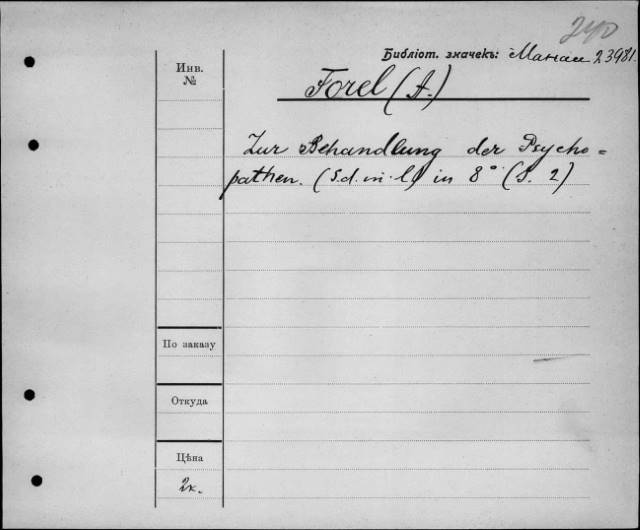 240
Библіот. значекъ: Манас 23981.
Инв.
№
Forel (A.)
Zur Behandlung der Psycho=
pathen. (S.d.in.l) in 8° (S. 2)
По заказу
Откуда
Цѣна
2к.